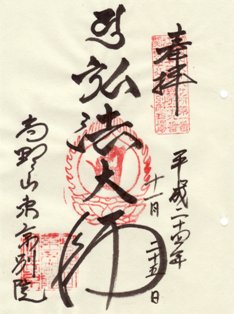 奉拝
平成二十四年
十一月二十五日
弘法大師
高野山東京別院